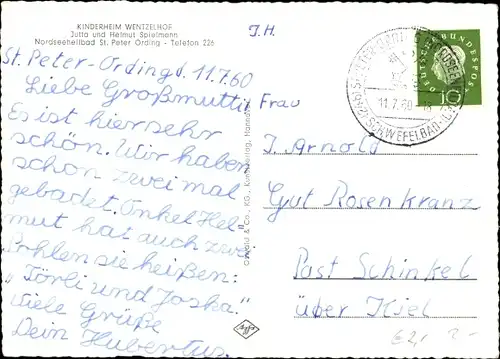 KINDERHEIM WENTZELHOF
Jutta und Helmut Spielmann
Nordseeheilbad St. Peter Ording - Telefon 226
J. H.
St. Peter-Ording d. 11.7.60
Liebe Großmutti
Es ist hier sehr
schön. Wir haben
schon zweimal
gebadet. Onkel Hel-
mut hat auch zwei
Pohlen sie heißen:
"Törli und Jaska."
Viele Grüße
Dein Hubertus.
Frau
J. Arnold
Gut Rosenkranz
Post Schinkel
über Kiel
DEUTSCHE BUNDESPOST
10
11.7.60-18
SCHWEFELBAD
€2,